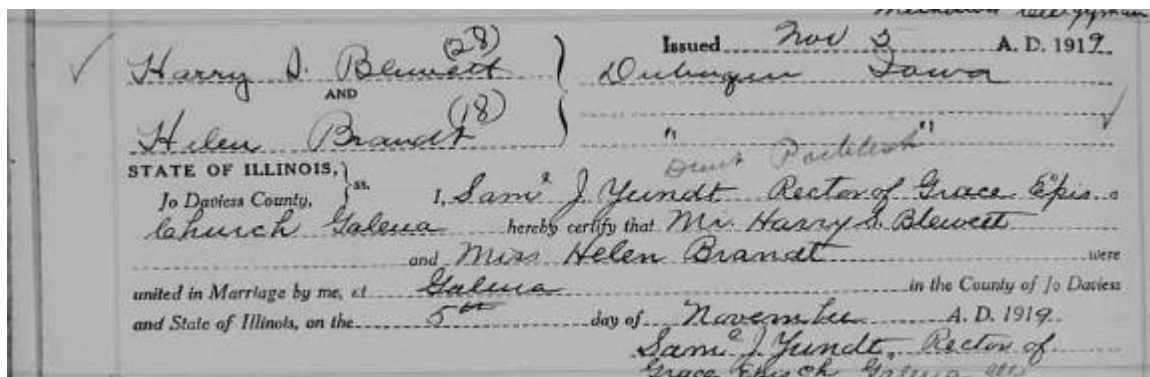 Clergyman
(28) Issued Nov 5 A. D. 1919
Harry S. Blewett } Dubuque Iowa
AND
(18)
Helen Brandt " "
Dont Publish
STATE OF ILLINOIS, } ss.
Jo Daviess County, I, Saml J. Yundt Rector of Grace Epis.
Church Galena hereby certify that Mr. Harry S. Blewett
and Miss Helen Brandt were
united in Marriage by me, at Galena in the County of Jo Daviess
and State of Illinois, on the 5th day of November A. D. 1919.
Saml J. Yundt, Rector of
Grace Epis Ch Galena Ills